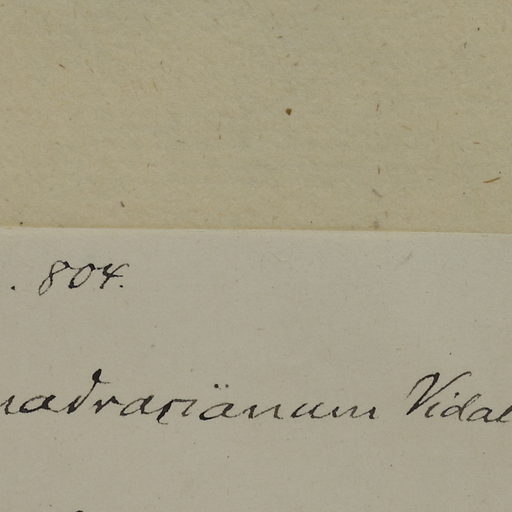 . 804.
nadraciänum Vidal